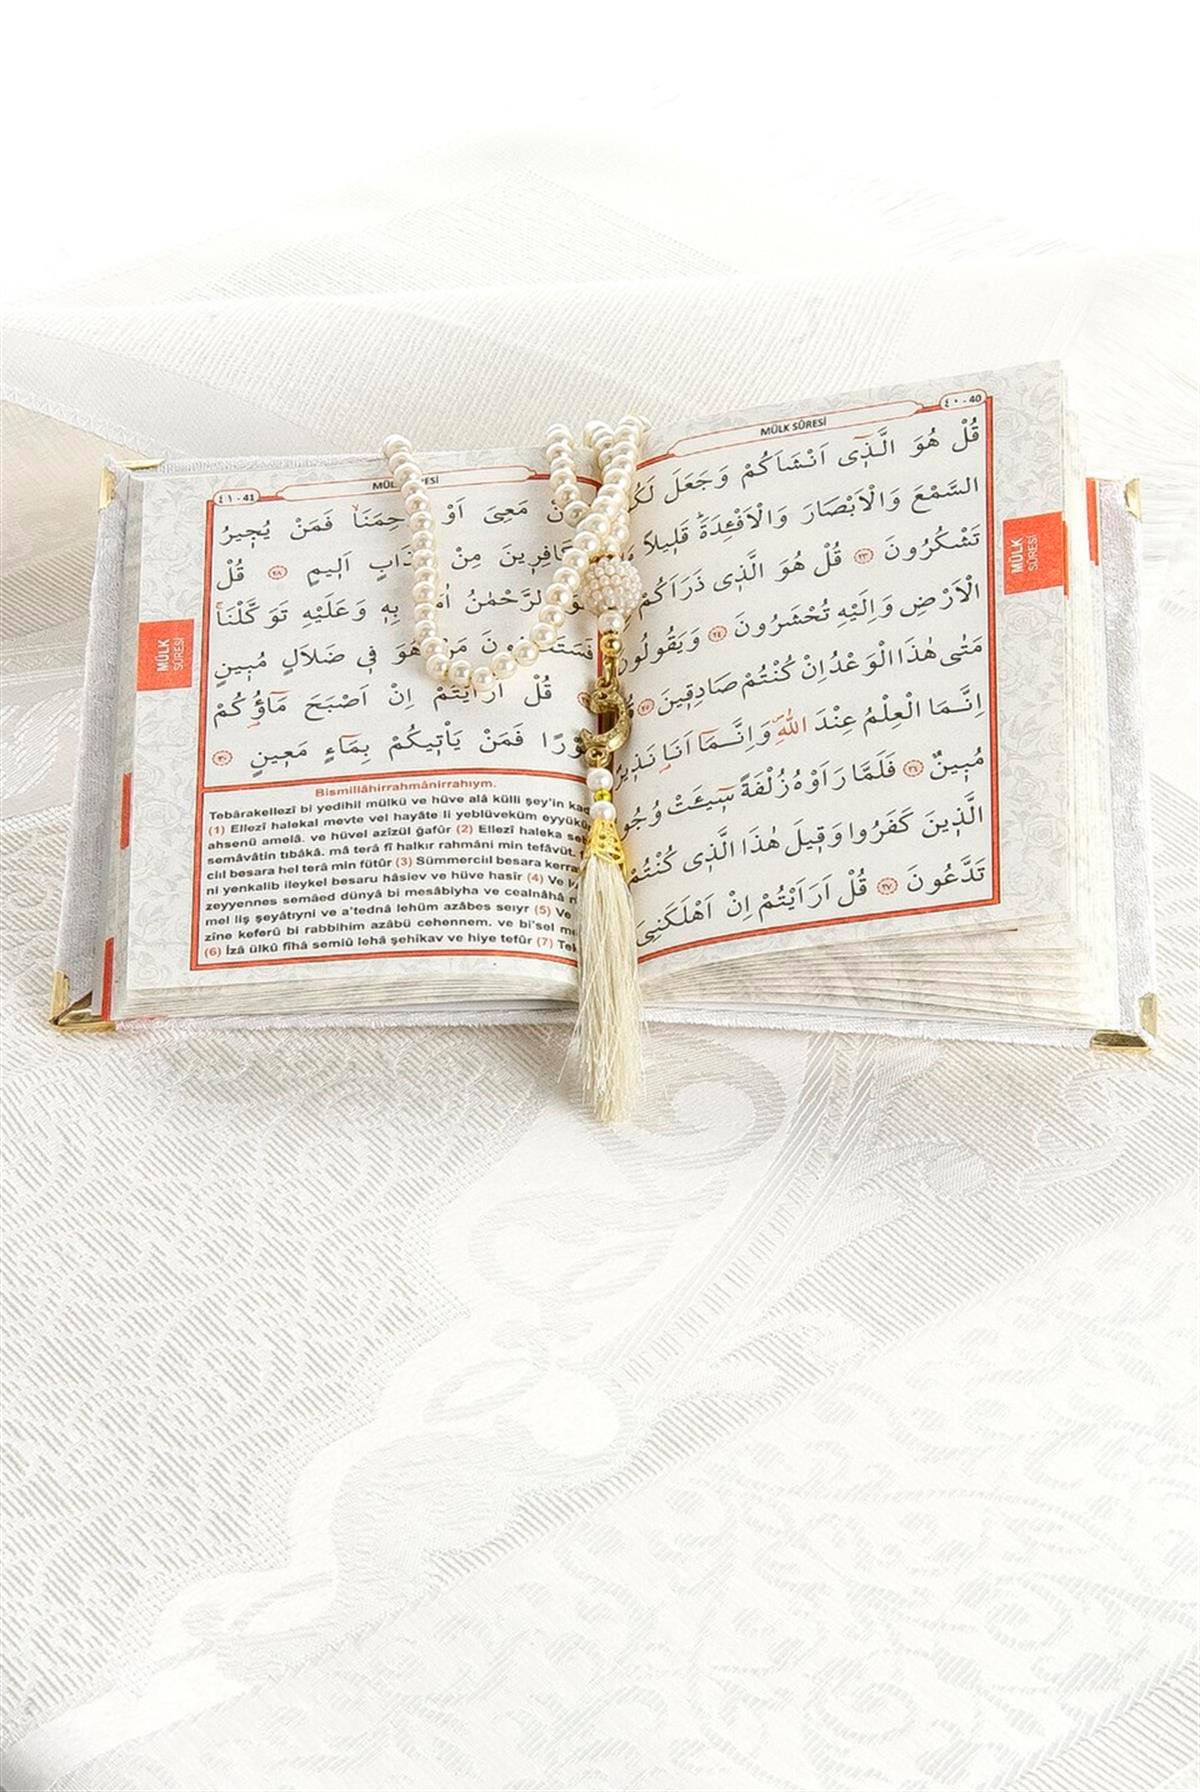 ٤٠ - 40
MÜLK SÛRESİ
قُلْ هُوَ الَّذ۪ٓى اَنْشَاَكُمْ وَجَعَلَ
السَّمْعَ وَالْاَبْصَارَ وَالْاَفْـِٔدَةَۜ قَل۪يلاً
تَشْكُرُونَ ﴿٢٣﴾ قُلْ هُوَ الَّذ۪ى ذَرَاَكُمْ
الْاَرْضِ وَاِلَيْهِ تُحْشَرُونَ ﴿٢٤﴾ وَيَقُولُونَ
مَتٰى هٰذَا الْوَعْدُ اِنْ كُنْتُمْ صَادِق۪ينَ ﴿٢٥﴾
اِنَّـمَا الْعِلْمُ عِنْدَ اللّٰهِۖ وَاِنَّـمَٓا اَنَا۬ نَذ۪يرٌ
مُب۪ينٌ ﴿٢٦﴾ فَلَمَّا رَاَوْهُ زُلْفَةً س۪ٓيـَٔتْ
الَّذ۪ينَ كَفَرُوا وَق۪يلَ هٰذَا الَّذ۪ى كُنْتُمْ
تَدَّعُونَ ﴿٢٧﴾ قُلْ اَرَاَيْتُمْ اِنْ اَهْلَكَنِىَ
MÜLK
SÛRESİ
٤١ - 41
مَعِىَ اَوْ فَمَنْ يُج۪يرُ
مِنْ اَل۪يمٍ ﴿٢٨﴾ قُلْ
بِه۪ وَعَلَيْهِ تَوَكَّلْنَاۚ
هُوَ ف۪ى ضَلَالٍ مُب۪ينٍ
قُلْ اَرَاَيْتُمْ اِنْ اَصْبَحَ مَٓاؤُ۬كُمْ
فَمَنْ يَاْت۪يكُمْ بِمَٓاءٍ مَع۪ينٍ ﴿٣٠﴾
MÜLK
SÛRESİ
Bismillâhirrahmânirrahıym.
Tebârakellezî bi yedihil mülkü ve hüve alâ külli şey'in
(1) Ellezî halekal mevte vel hayâte li yeblüveküm
ahsenü amelâ. ve hüvel azîzül ğafûr (2) Ellezî haleka
semâvâtin tıbâkâ. mâ terâ fî halkır rahmâni min tefâvüt.
cııl besara hel terâ min fütûr (3) Sümmercııl besara
ni yenkalib ileykel besaru hâsiev ve hüve hasîr (4) Ve
zeyyennes semâed dünyâ bi mesâbiyha ve cealnâhâ
mel liş şeyâtıyni ve a'tednâ lehüm azâbes seıyr (5) Ve
zîne keferû bi rabbihim azâbü cehennem. ve bi'sel
(6) İzâ ülkû fîhâ semiû lehâ şehîkav ve hiye tefûr (7)